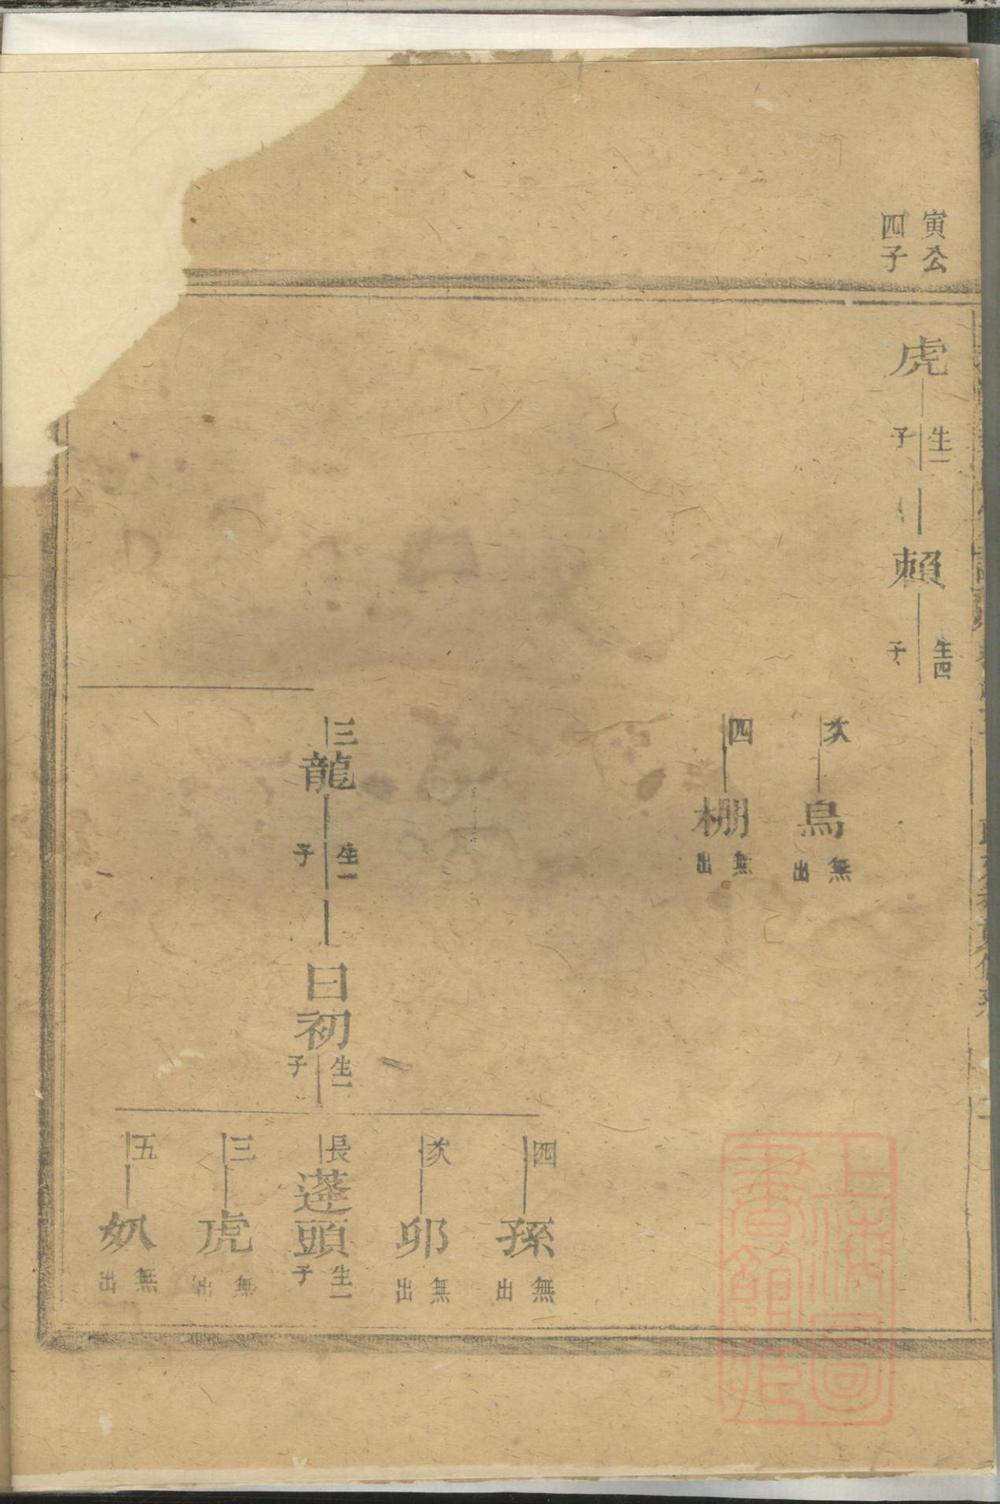 寅公
四子
虎
生一
子
賴
生四
子
次
鳥
無
出
四
棚
無
出
三
龍
生一
子
日初
生一
子
四
孫
無
出
次
卯
無
出
長
蓬頭
生一
子
三
虎
無
出
五
奴
無
出
上海圖
書館藏